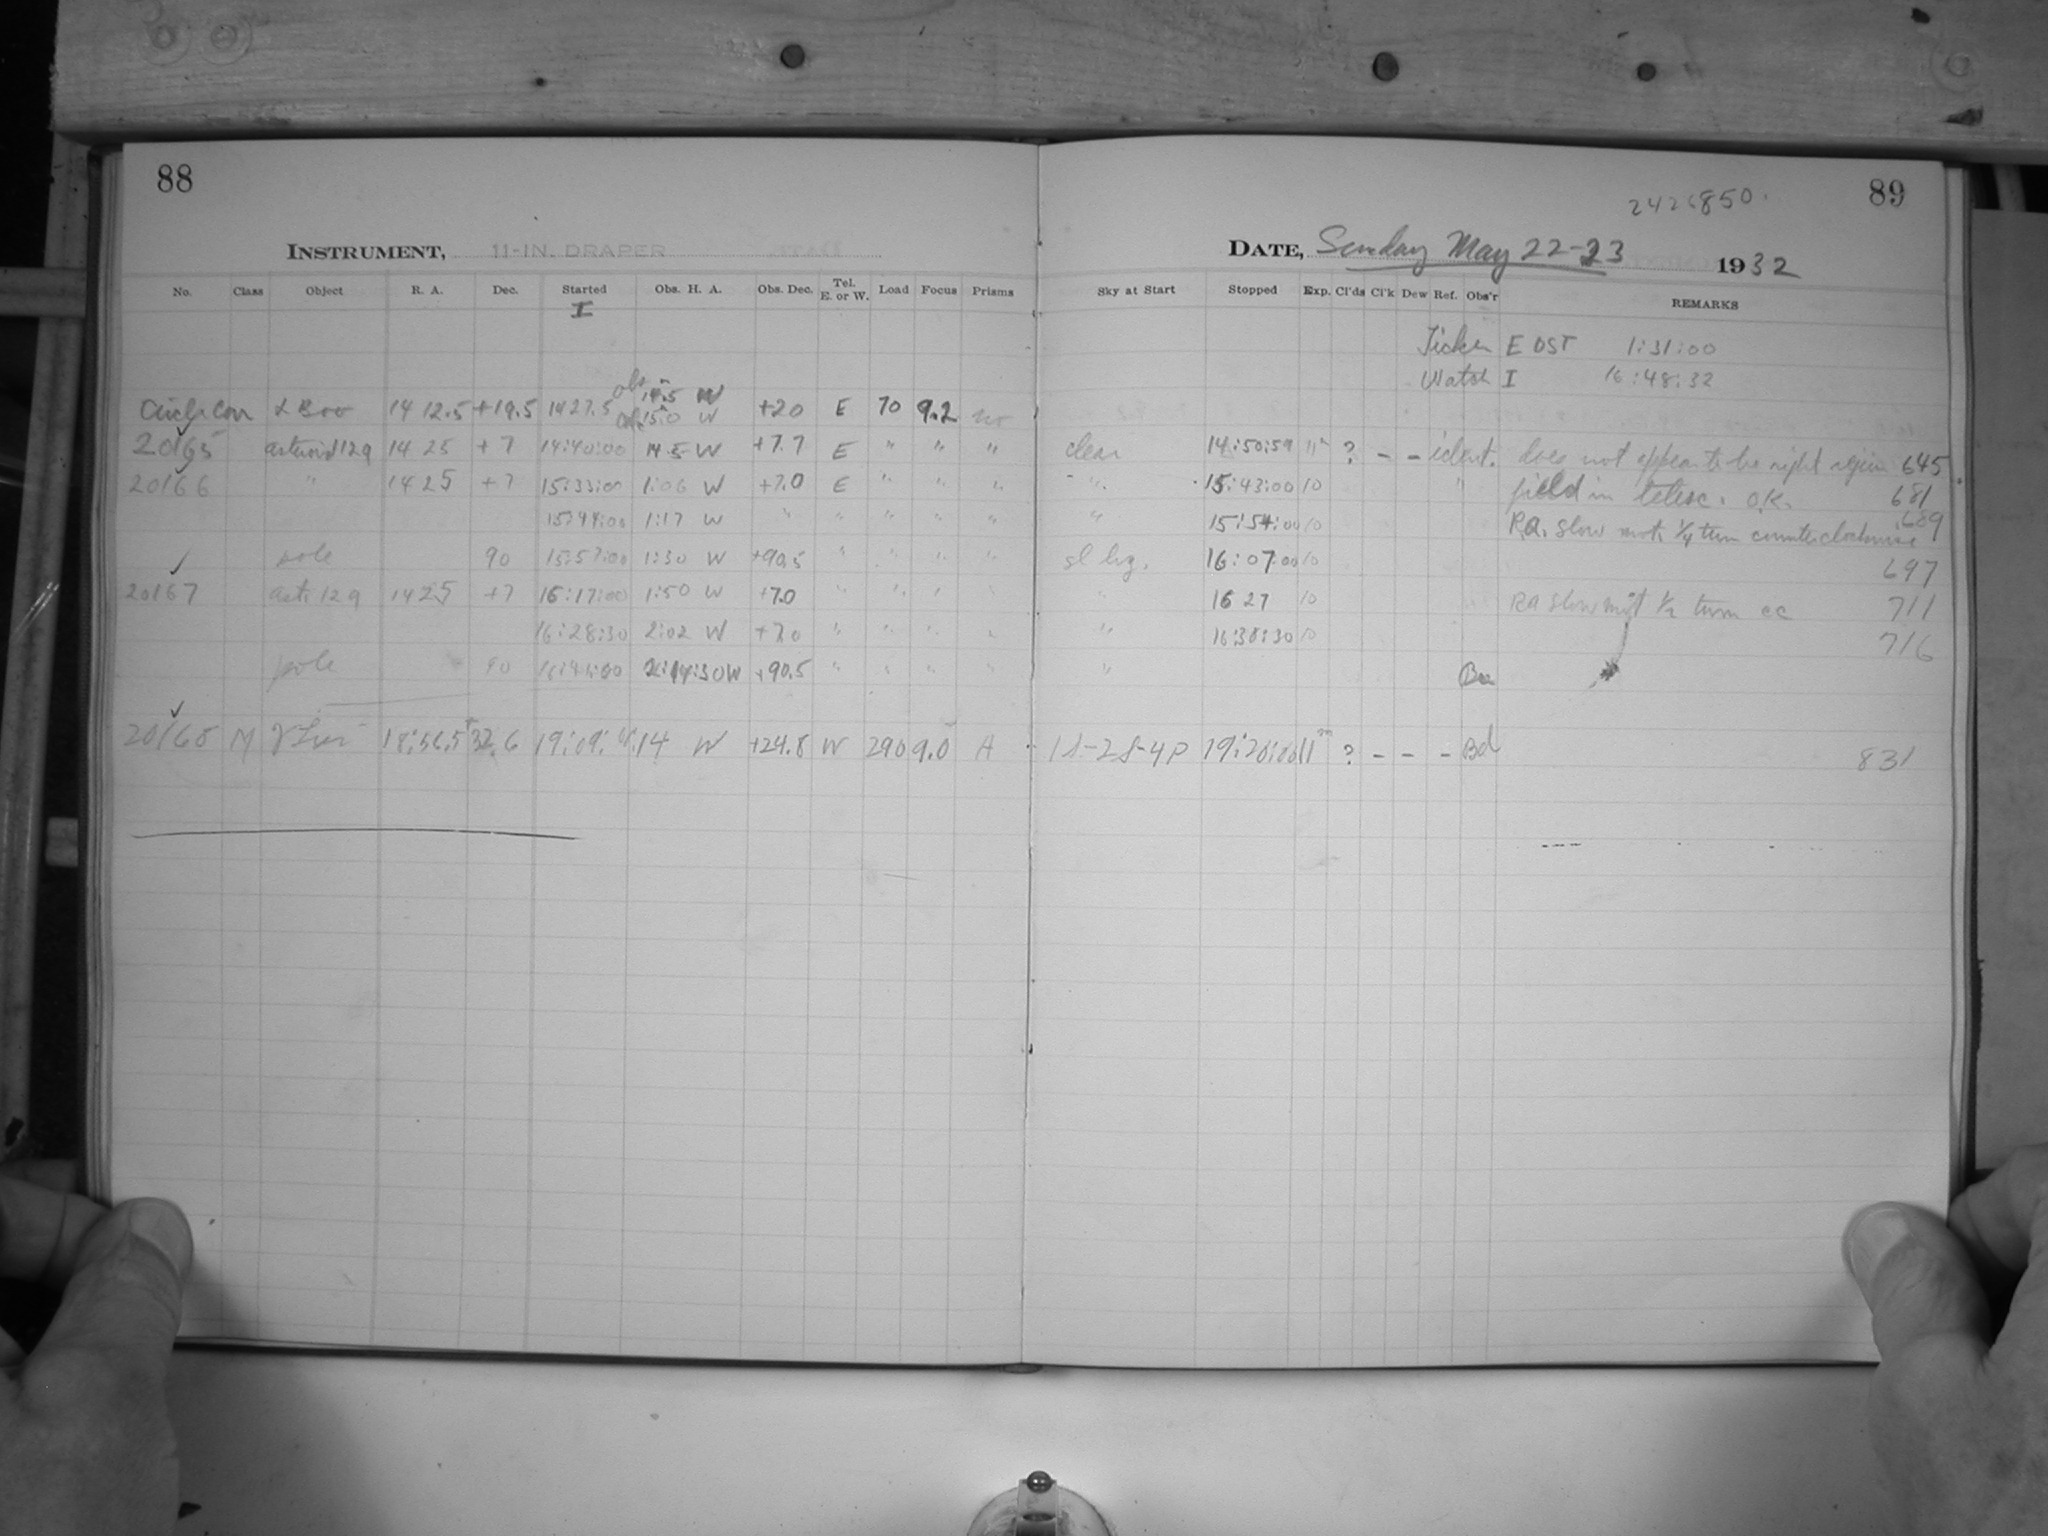 88
INSTRUMENT, 11-IN. DRAPER
No. Class Object R. A. Dec. Started Obs. H. A. Obs. Dec. Tel. E. or W. Load Focus Prisms
I
14.5 W
α Boo 14 12.5 +19.5 1427.5 15.0 W +20 E 70 9.2 no
20165 asteroid 129 14 25 +7 14:40:00 14.5 W +7.7 E " " "
20166 " 14 25 +7 15:33:00 1:06 W +7.0 E " " "
15:44:00 1:17 W " " " " "
pole 90 15:57:00 1:30 W +90.5 " " " "
20167 ast. 129 14 25 +7 16:17:00 1:50 W +7.0 " " " "
16:28:30 2:02 W +7.0 " " " "
pole 90 2:14:30 W +90.5 " " " "
20168 M 18:56.5 +32.6 14 W +24.8 W 290 9.0 A
89
2426850.
DATE, Sunday May 22-23 1932
Sky at Start Stopped Exp. Cl'ds Cl'k Dew Ref. Obs'r REMARKS
Ticker E DST 1:31:00
Watch I 16:48:32
clear 14:50:59 11m ? - - ident. does not appear to be right region 645
" 15:43:00 10 " field in telesc. O.K. 681
" 15:54:00 10 RA. slow mot. 1/4 turn counterclockwise 689
sl hzy. 16:07:00 10 697
" 16 27 10 RA slow mot 1/2 turn cc 711
" 16:38:30 10 716
"
1S-2S-4P 19:20:00 11m ? - - - Bd 831